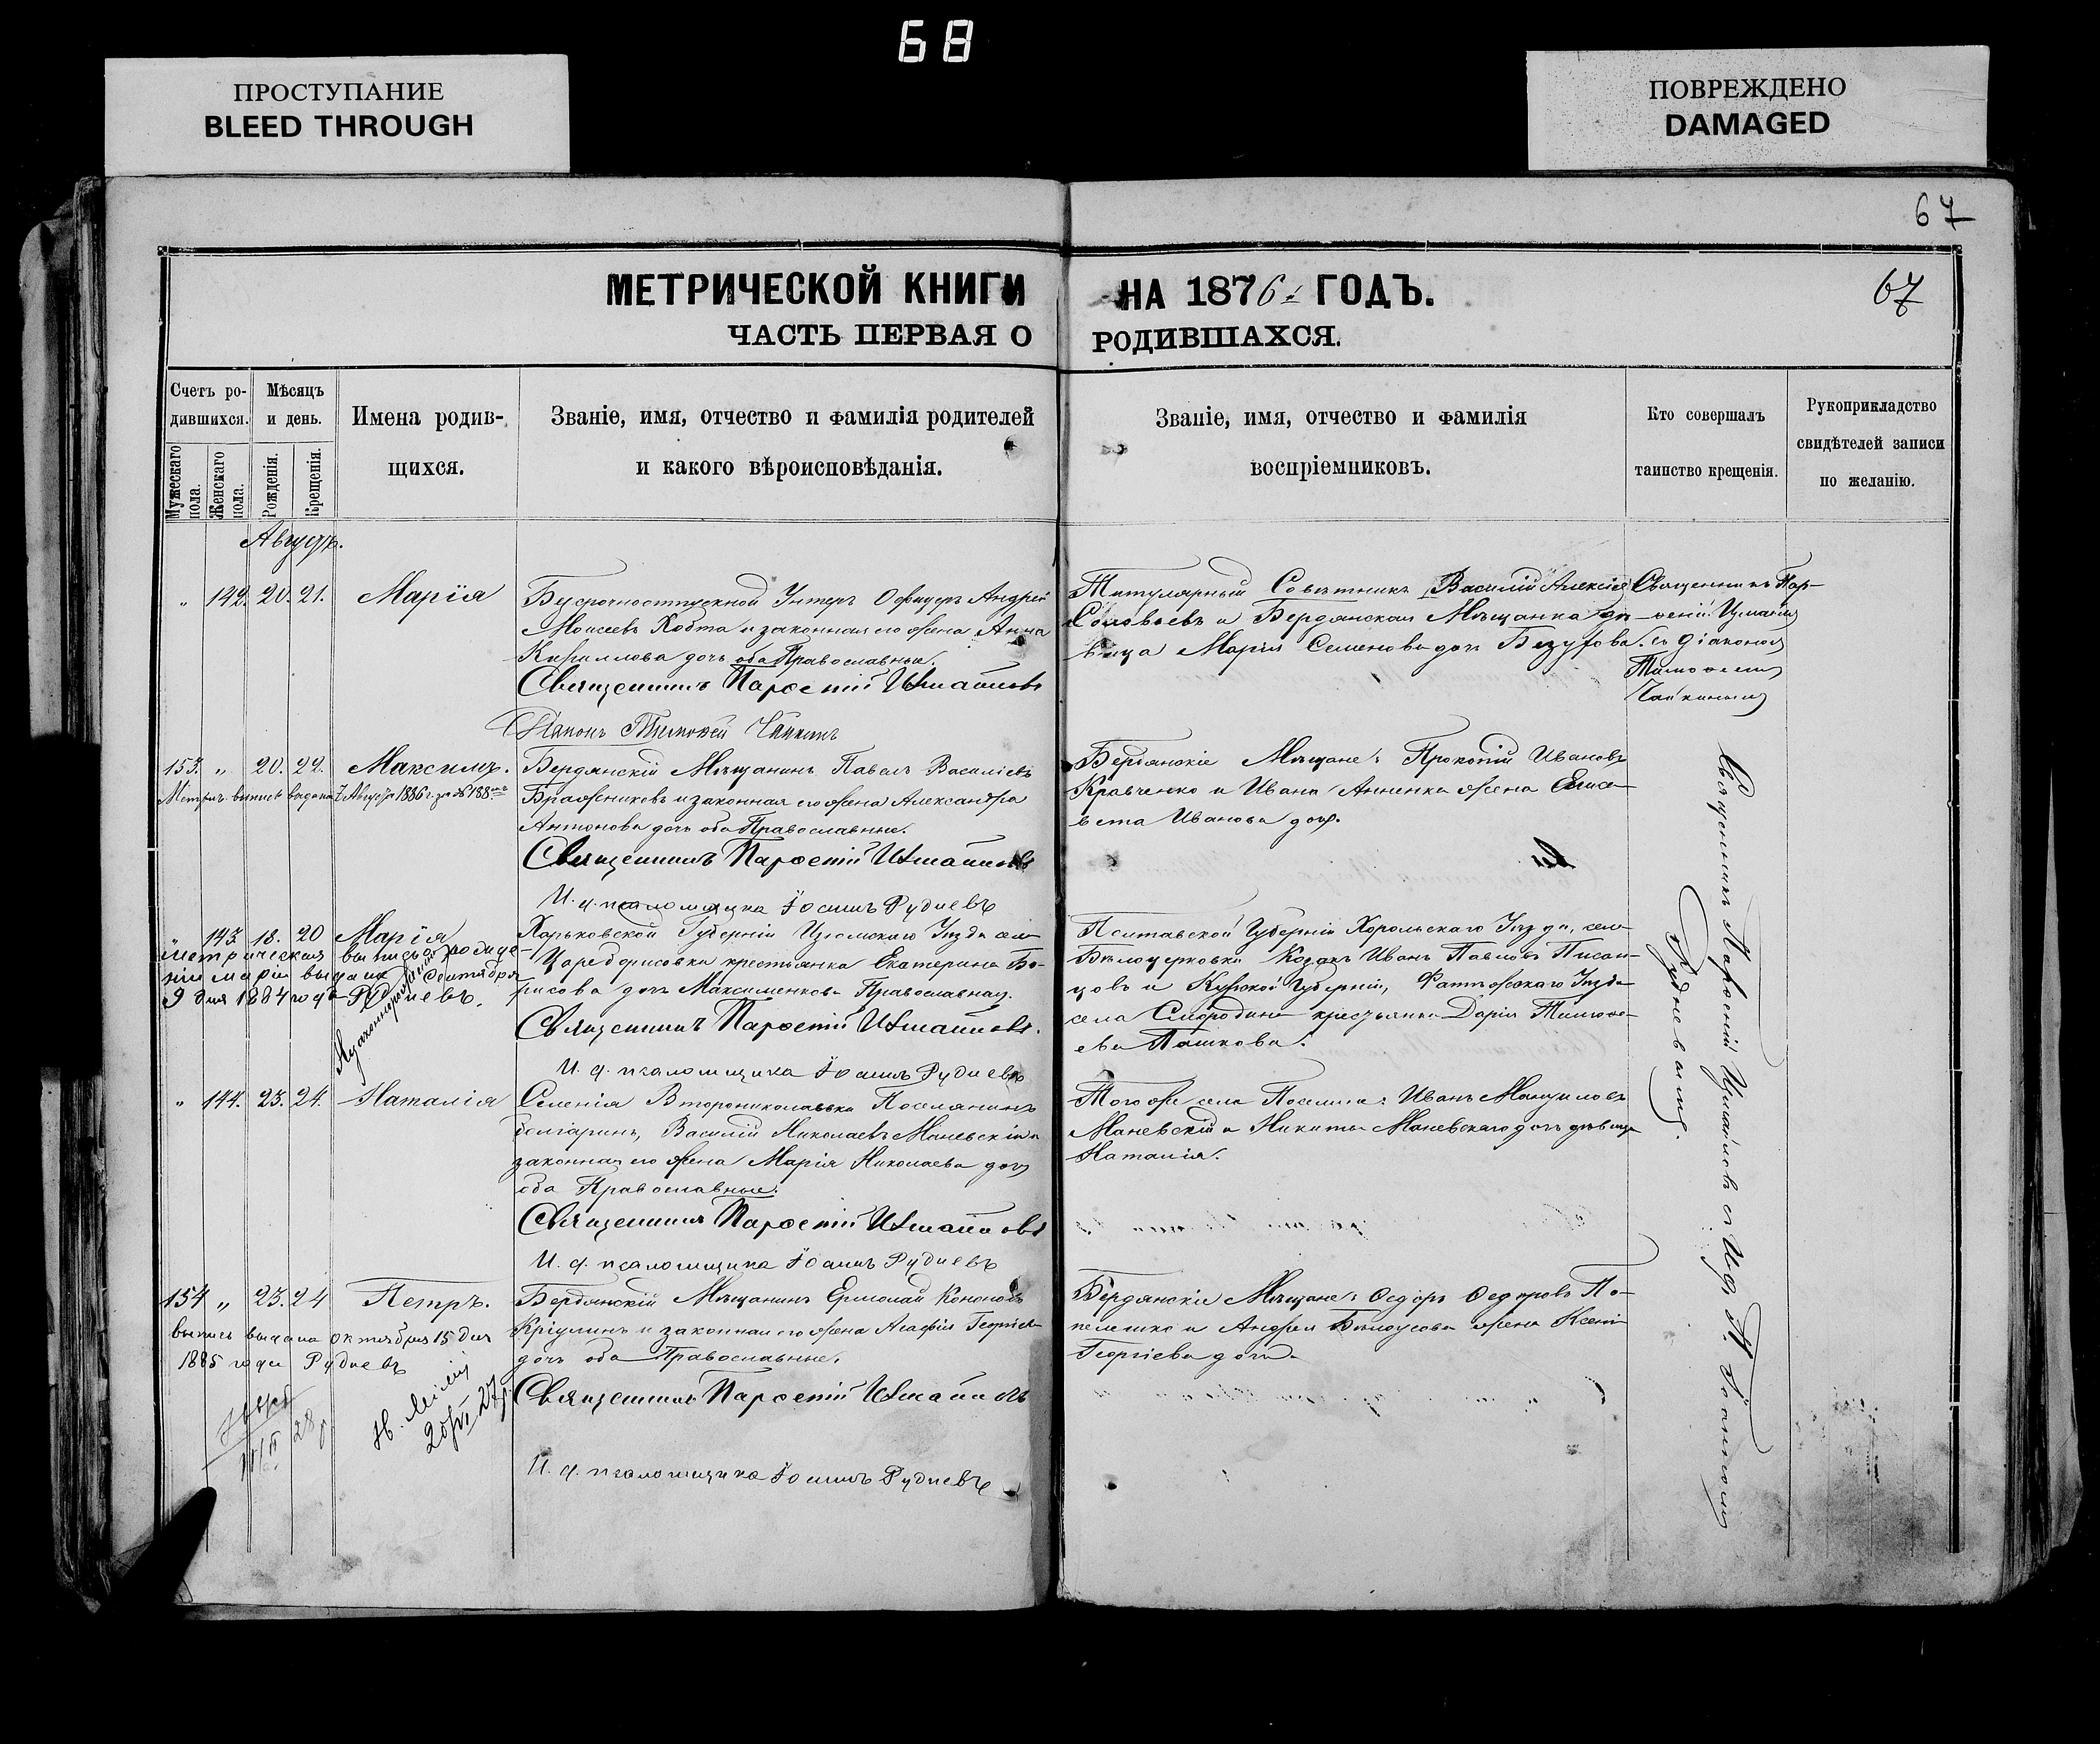 68
ПРОСТУПАНИЕ
BLEED THROUGH
ПОВРЕЖДЕНО
DAMAGED
67
МЕТРИЧЕСКОЙ КНИГИ НА 1876 ГОДЪ.
67
ЧАСТЬ ПЕРВАЯ О РОДИВШАХСЯ.
Счетъ ро-
дившихся.
Мужескаго пола.
Женскаго пола.
Мѣсяцъ
и день.
Рожденія.
Крещенія.
Имена родив-
щихся.
Званіе, имя, отчество и фамилія родителей
и какого вѣроисповѣданія.
Званіе, имя, отчество и фамилія
воспріемниковъ.
Кто совершалъ
таинство крещенія.
Рукоприкладство
свидѣтелей записи
по желанію.
Августъ.
" 142. 20. 21. Марія
Безсрочноотпускной Унтеръ Офицеръ Андрей
Моисеевъ Хобта и законная его жена Анна
Кириллова дочь оба Православные.
Священникъ Парѳеній
Діаконъ Тимоѳей Чайкинъ
Титулярный Совѣтникъ Василій Алексѣевъ
Соловьевъ и Бердянская Мѣщанка дѣ-
вица Марія Семенова дочь
Священникъ Пар-
ѳеній
съ діакономъ
Тимоѳеемъ
Чайкинымъ
153. " 20. 22. Максимъ.
Метрич. выпись выдана 7 Августа 1886 г. за № 188
Бердянскій Мѣщанинъ Павелъ Василіевъ
Бражниковъ и законная его жена Александра
Антонова дочь оба Православные.
Священникъ Парѳеній
И. д. псаломщика Іоаннъ Рудневъ
Бердянскіе Мѣщане: Прокопій Ивановъ
Кравченко и Ивана Анненка жена Елиса-
вета Иванова дочь.
" 143. 18. 20 Марія
Незаконнорожденная
метрическая выпись о рожде-
ніи Маріи выдана Сентября
9 дня 1884 года Рудневъ.
Харьковской Губерніи Изюмскаго Уѣзда села
Цареборисовка крестьянка Екатерина Бо-
рисова дочь Максименкова Православная.
Священникъ Парѳеній
И. д. псаломщика Іоаннъ Рудневъ
Полтавской Губерніи Хорольскаго Уѣзда, села
Бѣлоцерковки Козакъ Иванъ Павловъ Писан-
цовъ и Курской Губерніи, Фатежскаго Уѣзда
села Смородина крестьянка Дарія Тимоѳе-
ева Пашкова.
" 144. 23. 24. Наталія
Селенія Второниколаевки Поселянинъ
болгаринъ, Василій Николаевъ Маневскій и
законная его жена Марія Николаева дочь
оба Православные.
Священникъ Парѳеній
И. д. псаломщика Іоаннъ Рудневъ
Того же села Поселяне: Иванъ
Маневскій и Никиты Маневскаго дочь дѣвица
Наталія.
154 " 23. 24 Петръ.
выпись выдана октября 15 дня
1885 года Рудневъ
Бердянскій Мѣщанинъ Ермолай Кононовъ
и законная его жена Агафія Георгіева
дочь оба Православные.
Священникъ Парѳеній
И. д. псаломщика Іоаннъ Рудневъ
Бердянскіе Мѣщане: Ѳедоръ Ѳедоровъ По-
пелешко и Андрея Бѣлоусова жена Ксенія
Георгіева дочь.
Священникъ Парѳеній съ И. д. П. Іоанномъ
Рудневымъ.